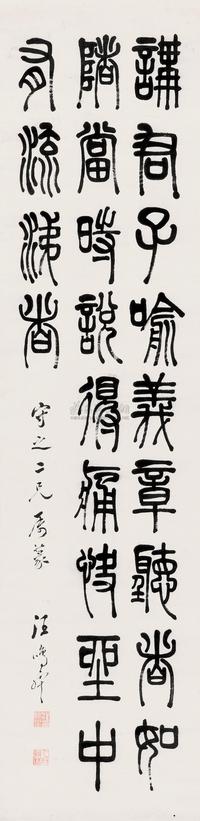 講君子喻義章聽者如
堵當時說得痛快坐中
有流涕者
守之二兄屬篆 汪